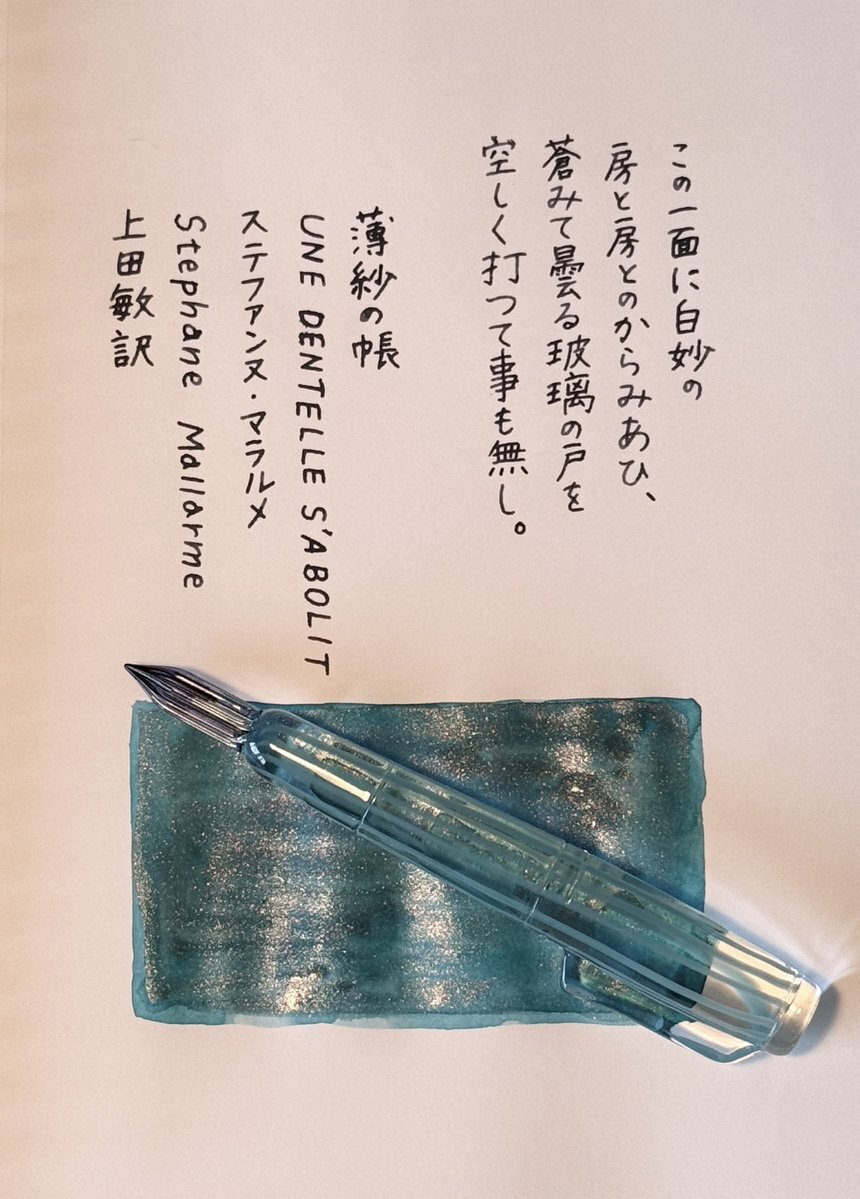 この一面に白妙の
房と房とのからみあひ、
蒼みて曇る玻璃の戸を
空しく打つて事も無し。
薄紗の帳
UNE DENTELLE S'ABOLIT
ステファンヌ・マラルメ
Stephane Mallarme
上田敏訳